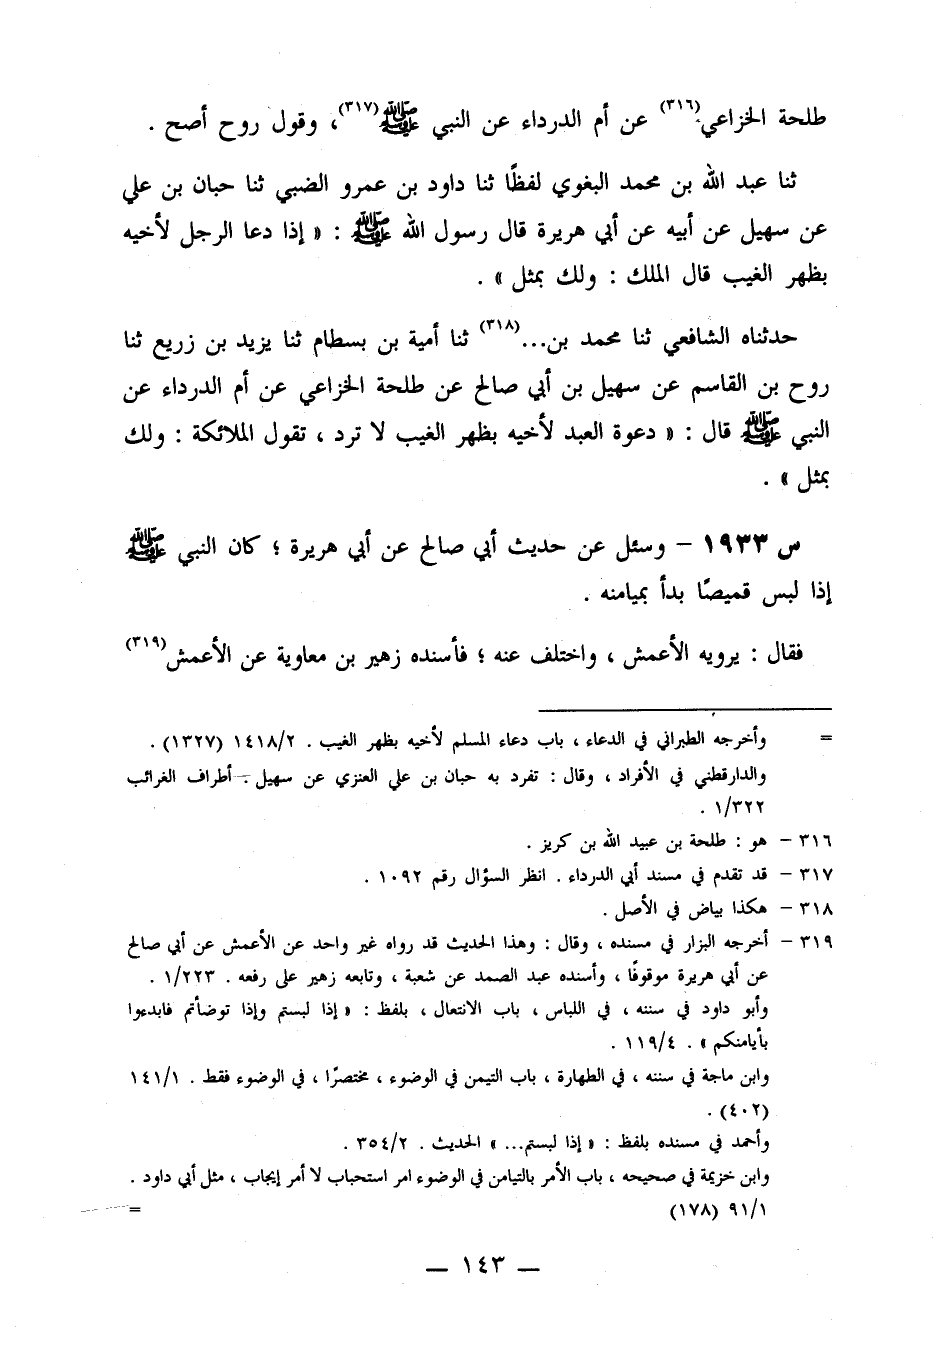 طلحة الخزاعي(٣١٦) عن أم الدرداء عن النبي ﷺ(٣١٧)، وقول روح أصح .
ثنا عبد الله بن محمد البغوي لفظًا ثنا داود بن عمرو الضبي ثنا حبان بن علي
عن سهيل عن أبيه عن أبي هريرة قال رسول الله ﷺ : « إذا دعا الرجل لأخيه
بظهر الغيب قال الملك : ولك بمثل » .
حدثناه الشافعي ثنا محمد بن...(٣١٨) ثنا أمية بن بسطام ثنا يزيد بن زريع ثنا
روح بن القاسم عن سهيل بن أبي صالح عن طلحة الخزاعي عن أم الدرداء عن
النبي ﷺ قال : « دعوة العبد لأخيه بظهر الغيب لا ترد ، تقول الملائكة : ولك
بمثل » .
س ١٩٣٣ – وسئل عن حديث أبي صالح عن أبي هريرة ؛ كان النبي ﷺ
إذا لبس قميصًا بدأ بميامنه .
فقال : يرويه الأعمش ، واختلف عنه ؛ فأسنده زهير بن معاوية عن الأعمش(٣١٩)
= وأخرجه الطبراني في الدعاء ، باب دعاء المسلم لأخيه بظهر الغيب . ١٤١٨/٢ (١٣٢٧) .
والدارقطني في الأفراد ، وقال : تفرد به حبان بن علي العنزي عن سهيل . أطراف الغرائب
١/٣٢٢ .
٣١٦ – هو : طلحة بن عبيد الله بن كريز .
٣١٧ – قد تقدم في مسند أبي الدرداء . انظر السؤال رقم ١٠٩٢ .
٣١٨ – هكذا بياض في الأصل .
٣١٩ – أخرجه البزار في مسنده ، وقال : وهذا الحديث قد رواه غير واحد عن الأعمش عن أبي صالح
عن أبي هريرة موقوفًا ، وأسنده عبد الصمد عن شعبة ، وتابعه زهير على رفعه . ١/٢٢٣ .
وأبو داود في سننه ، في اللباس ، باب الانتعال ، بلفظ : « إذا لبستم وإذا توضأتم فابدءوا
بأيامنكم » . ١١٩/٤ .
وابن ماجة في سننه ، في الطهارة ، باب التيمن في الوضوء ، مختصرًا ، في الوضوء فقط . ١٤١/١
(٤٠٢) .
وأحمد في مسنده بلفظ : « إذا لبستم... » الحديث . ٣٥٤/٢ .
وابن خزيمة في صحيحه ، باب الأمر بالتيامن في الوضوء امر استحباب لا أمر إيجاب ، مثل أبي داود .
٩١/١ (١٧٨) =
— ١٤٣ —